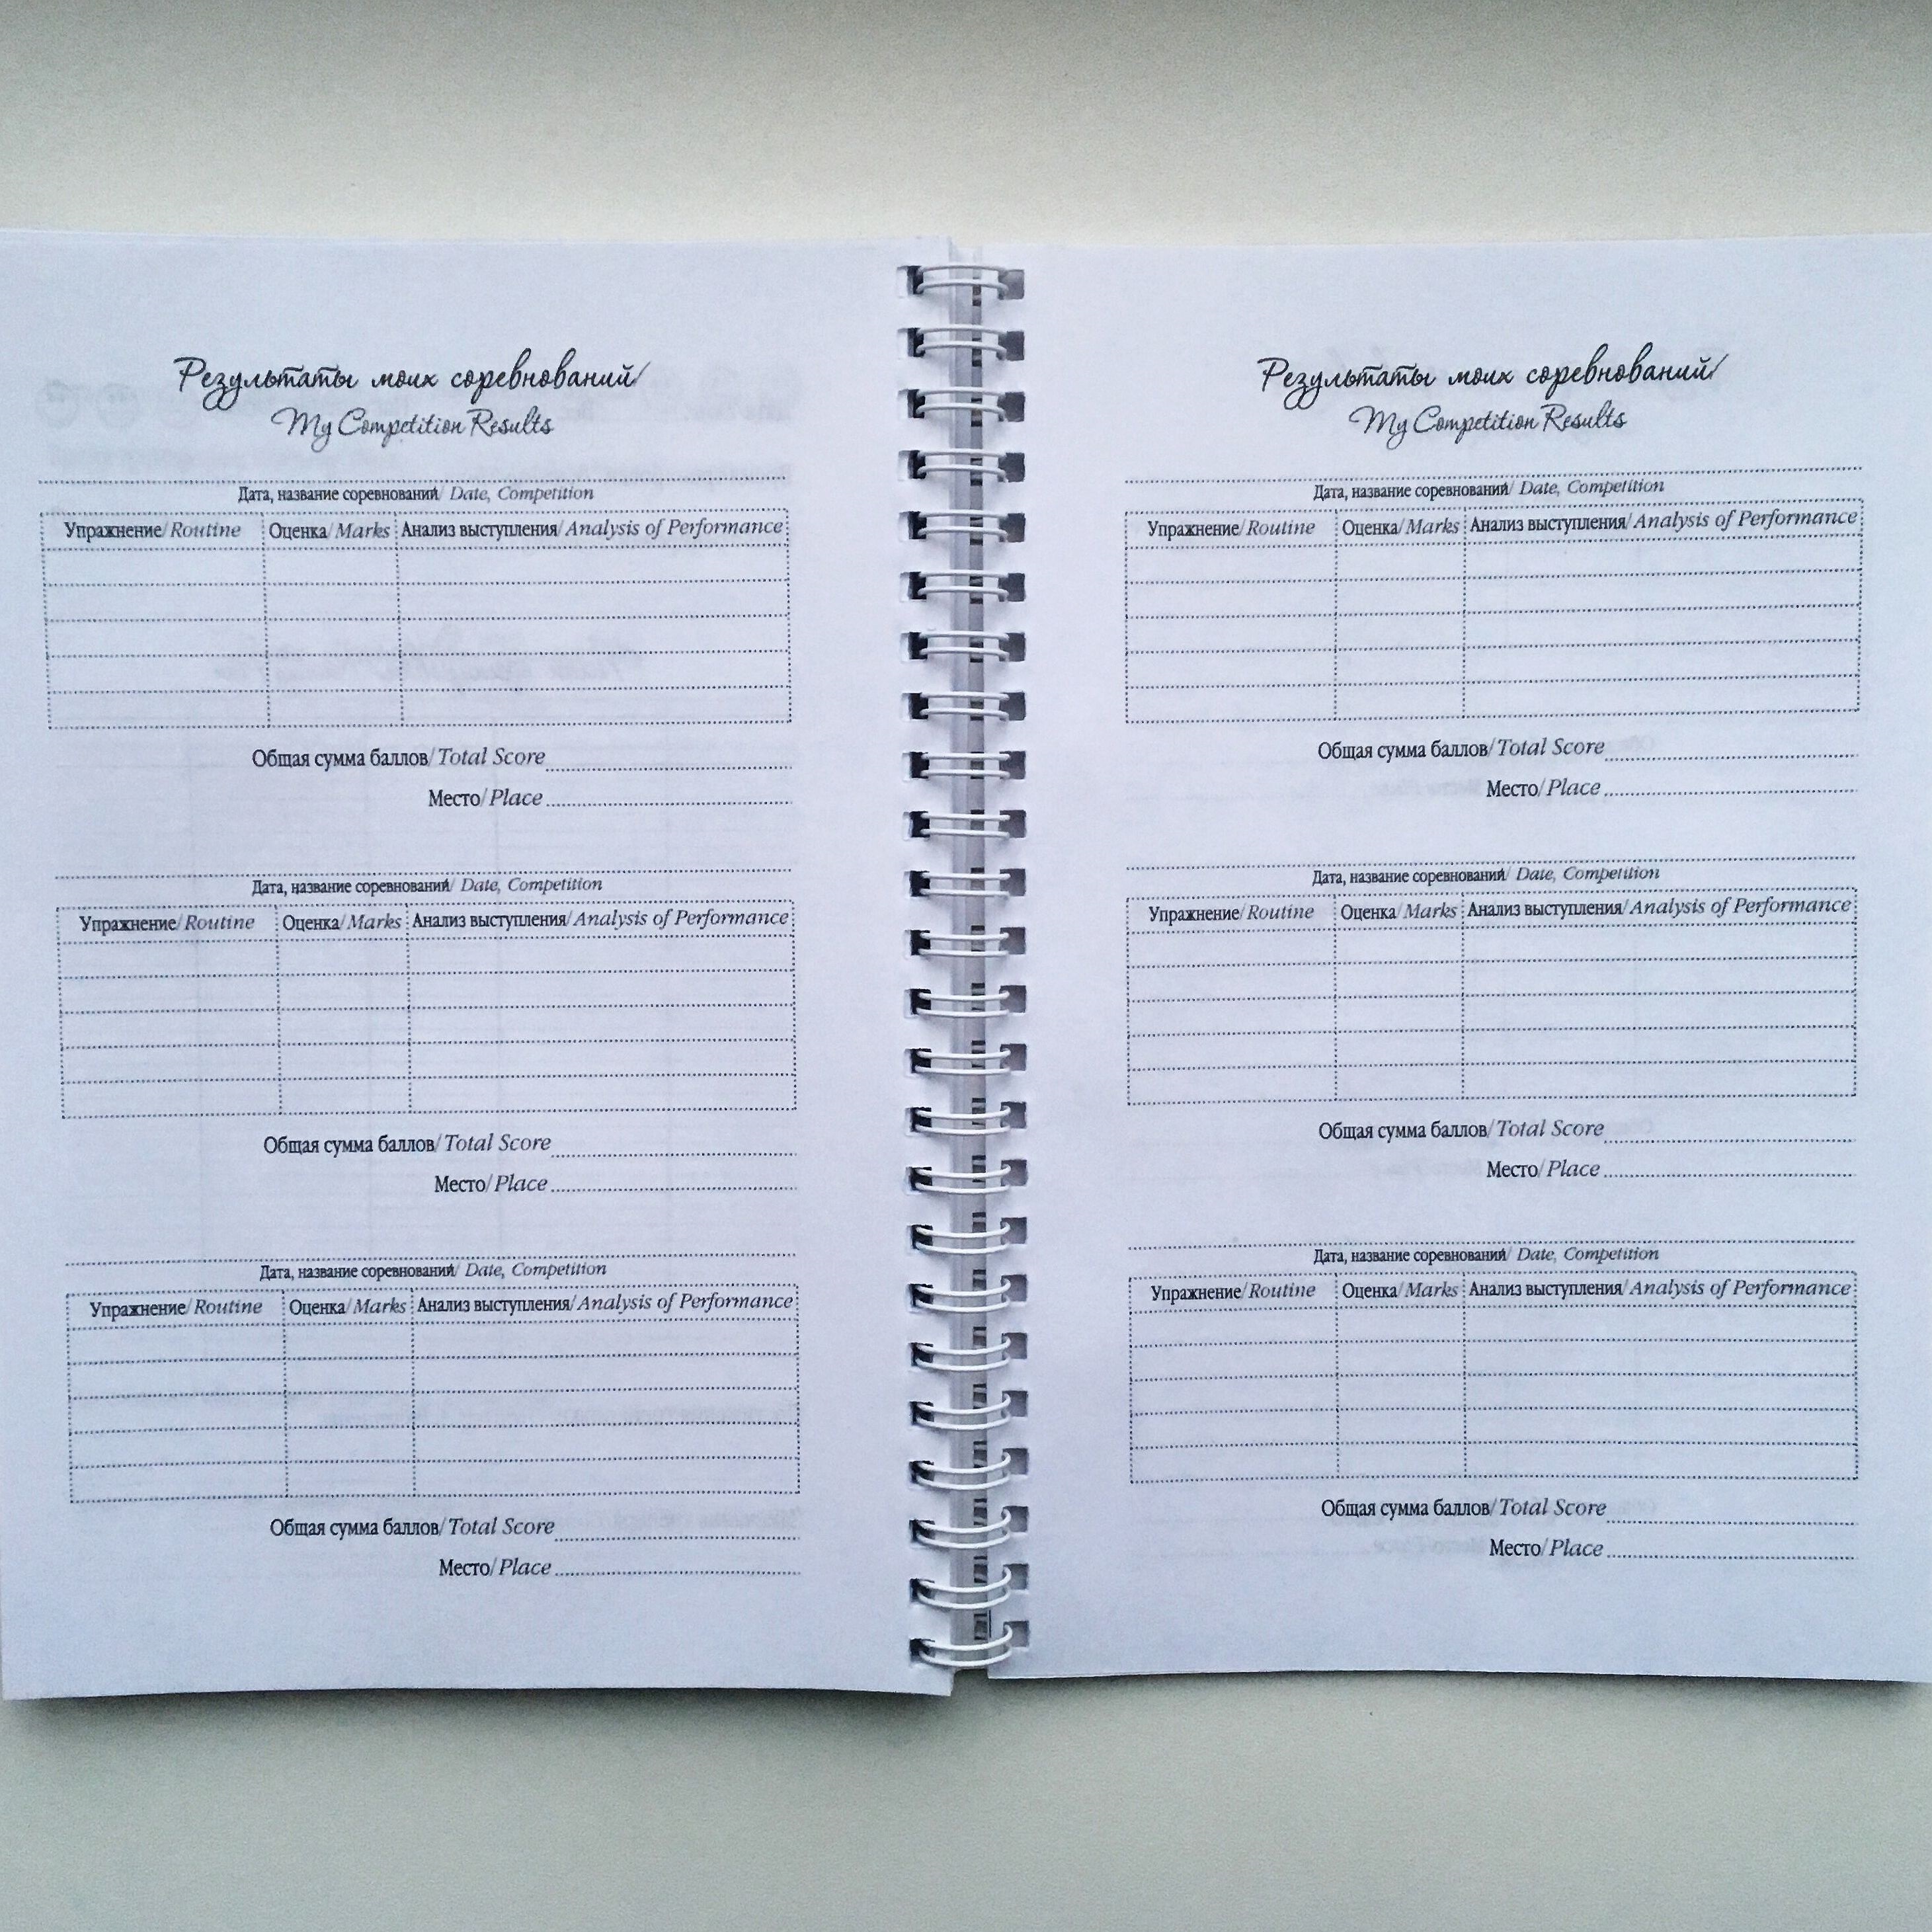 Результаты моих соревнований/
My Competition Results
Дата, название соревнований/ Date, Competition
Упражнение/Routine Оценка/Marks Анализ выступления/Analysis of Performance
Общая сумма баллов/Total Score
Место/Place
Дата, название соревнований/ Date, Competition
Упражнение/Routine Оценка/Marks Анализ выступления/Analysis of Performance
Общая сумма баллов/Total Score
Место/Place
Дата, название соревнований/ Date, Competition
Упражнение/Routine Оценка/Marks Анализ выступления/Analysis of Performance
Общая сумма баллов/Total Score
Место/Place
Результаты моих соревнований/
My Competition Results
Дата, название соревнований/ Date, Competition
Упражнение/Routine Оценка/Marks Анализ выступления/Analysis of Performance
Общая сумма баллов/Total Score
Место/Place
Дата, название соревнований/ Date, Competition
Упражнение/Routine Оценка/Marks Анализ выступления/Analysis of Performance
Общая сумма баллов/Total Score
Место/Place
Дата, название соревнований/ Date, Competition
Упражнение/Routine Оценка/Marks Анализ выступления/Analysis of Performance
Общая сумма баллов/Total Score
Место/Place